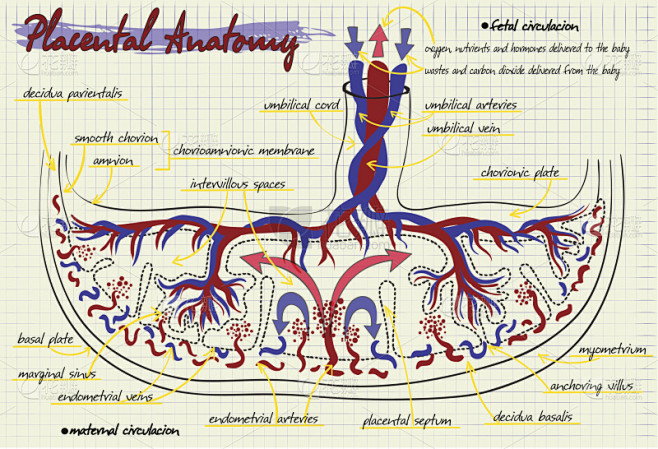 Placental Anatomy
• fetal circulacion
oxygen, nutrients and hormones delivered to the baby
wastes and carbon dioxide delivered from the baby
decidua parientalis
umbilical cord
umbilical arteries
umbilical vein
smooth chorion
amnion
chorioamnionic membrane
intervillous spaces
chorionic plate
basal plate
marginal sinus
endometrial veins
endometrial arteries
placental septum
decidua basalis
anchoring villus
myometrium
• maternal circulacion